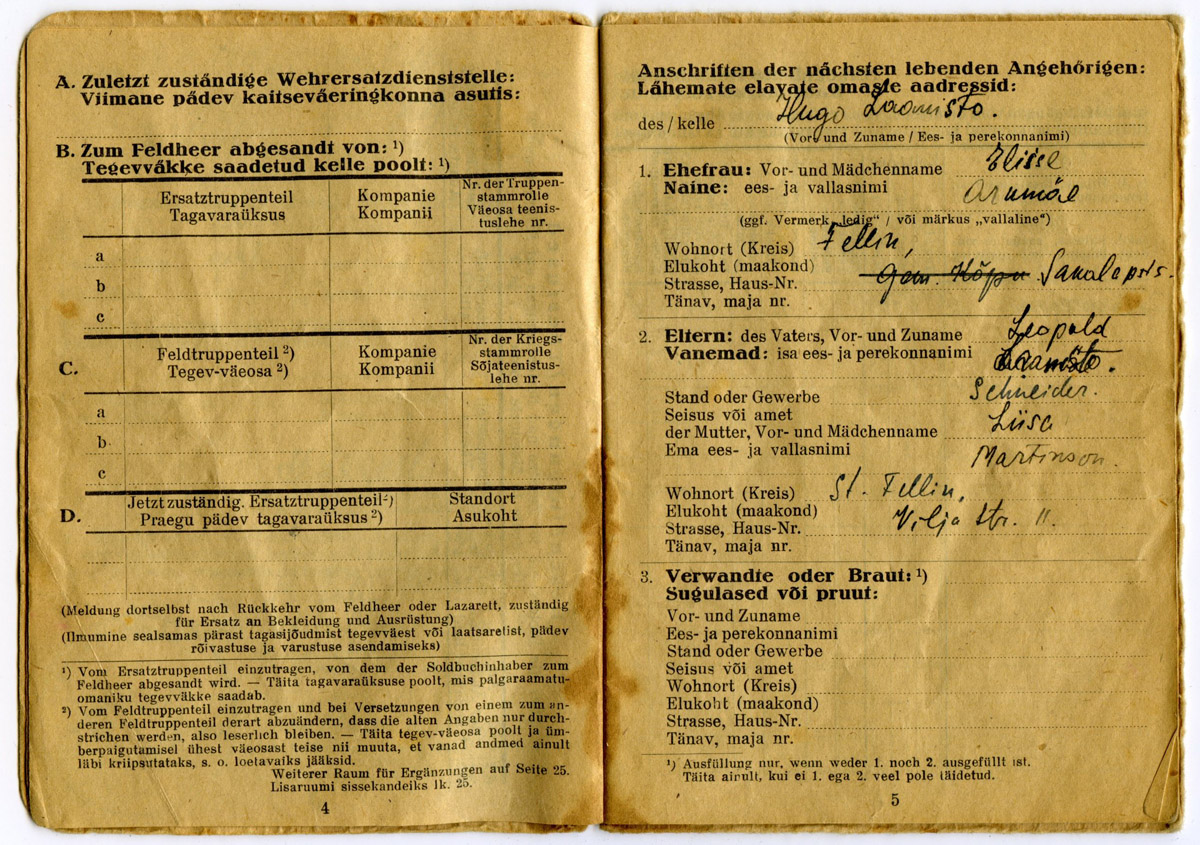 A. Zuletzt zuständige Wehrersatzdienststelle:
Viimane pädev kaitseväeringkonna asutis:
B. Zum Feldheer abgesandt von: ¹)
Tegevväkke saadetud kelle poolt: ¹)
Ersatztruppenteil
Tagavaraüksus
Kompanie
Kompanii
Nr. der Truppen-
stammrolle
Väeosa teenis-
tuslehe nr.
a
b
c
C.
Feldtruppenteil ²)
Tegev-väeosa ²)
Kompanie
Kompanii
Nr. der Kriegs-
stammrolle
Sõjateenistus-
lehe nr.
a
b
c
D.
Jetzt zuständig. Ersatztruppenteil ²)
Praegu pädev tagavaraüksus ²)
Standort
Asukoht
(Meldung dortselbst nach Rückkehr vom Feldheer oder Lazarett, zuständig
für Ersatz an Bekleidung und Ausrüstung)
(Ilmumine sealsamas pärast tagasijõudmist tegevväest või laatsaretist, pädev
rõivastuse ja varustuse asendamiseks)
¹) Vom Ersatztruppenteil einzutragen, von dem der Soldbuchinhaber zum
Feldheer abgesandt wird. — Täita tagavaraüksuse poolt, mis palgaraamatu-
omaniku tegevväkke saadab.
²) Vom Feldtruppenteil einzutragen und bei Versetzungen von einem zum an-
deren Feldtruppenteil derart abzuändern, dass die alten Angaben nur durch-
strichen werden, also leserlich bleiben. — Täita tegev-väeosa poolt ja üm-
berpaigutamisel ühest väeosast teise nii muuta, et vanad andmed ainult
läbi kriipsutataks, s. o. loetavaiks jääksid.
Weiterer Raum für Ergänzungen auf Seite 25.
Lisaruumi sissekandeiks lk. 25.
4
Anschriften der nächsten lebenden Angehörigen:
Lähemate elavate omaste aadressid:
des / kelle Hugo Laanisto.
(Vor- und Zuname / Ees- ja perekonnanimi)
1. Ehefrau: Vor- und Mädchenname Elisse
Naine: ees- ja vallasnimi Arumäe
(ggf. Vermerk „ledig“ / või märkus „vallaline“)
Wohnort (Kreis) Fellin,
Elukoht (maakond)
Strasse, Haus-Nr. Gem. Kõpu
Tänav, maja nr.
2. Eltern: des Vaters, Vor- und Zuname Leopold
Vanemad: isa ees- ja perekonnanimi Laanisto.
Stand oder Gewerbe Schneider.
Seisus või amet
der Mutter, Vor- und Mädchenname Liisa
Ema ees- ja vallasnimi Martinson.
Wohnort (Kreis) St. Fellin,
Elukoht (maakond)
Strasse, Haus-Nr. Vilja str. 11.
Tänav, maja nr.
3. Verwandte oder Braut: ¹)
Sugulased või pruut:
Vor- und Zuname
Ees- ja perekonnanimi
Stand oder Gewerbe
Seisus või amet
Wohnort (Kreis)
Elukoht (maakond)
Strasse, Haus-Nr.
Tänav, maja nr.
¹) Ausfüllung nur, wenn weder 1. noch 2. ausgefüllt ist.
Täita ainult, kui ei 1. ega 2. veel pole täidetud.
5